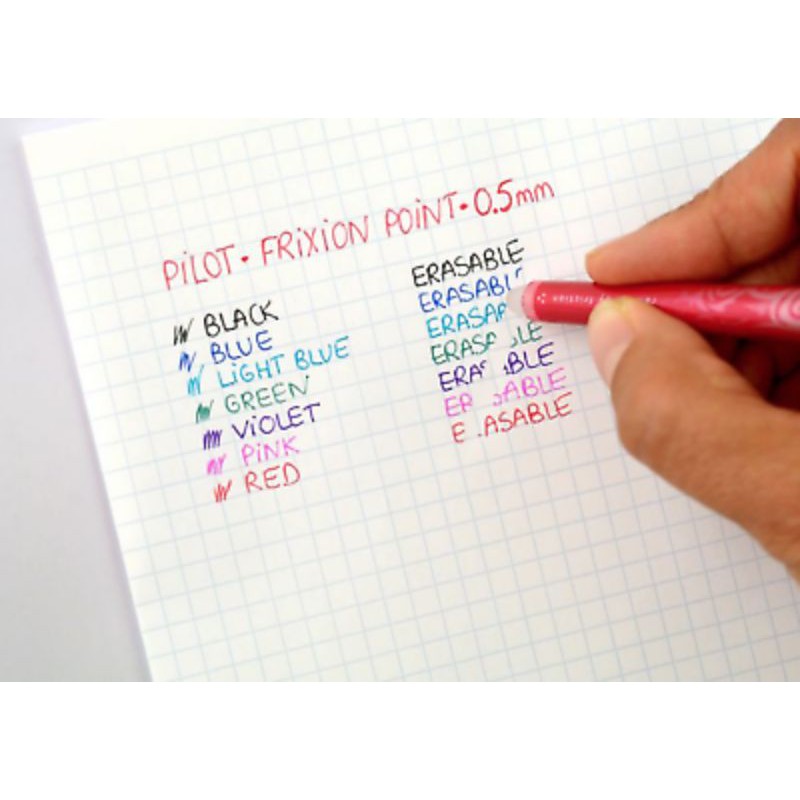 PiLOT • FRiXiON POiNT • 0.5mm
BLACK
BLUE
LiGHT BLUE
GREEN
ViOLET
PiNK
RED
ERASABLE
ERASABL
ERASA
ERAS LE
ERA BLE
ER ABLE
E ASABLE
frixion